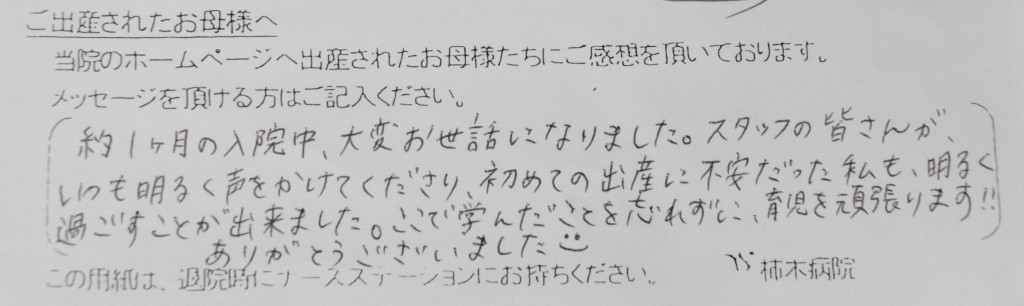 ご出産されたお母様へ
当院のホームページへ出産されたお母様たちにご感想を頂いております。
メッセージを頂ける方はご記入ください。
約1ヶ月の入院中、大変お世話になりました。スタッフの皆さんが、
いつも明るく声をかけてくださり、初めての出産に不安だった私も、明るく
過ごすことが出来ました。ここで学んだことを忘れずに、育児を頑張ります!!
ありがとうございました
この用紙は、退院時にナースステーションにお持ちください。
柿木病院